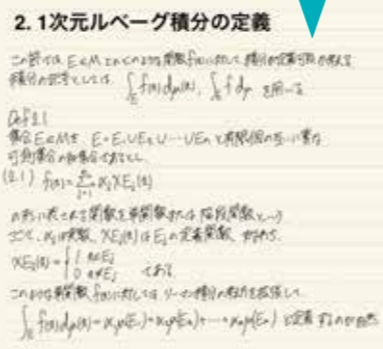 2. 1次元ルベーグ積分の定義
この節では E∈M とこのような関数 f(x)に対して、積分が定義可能か考える
積分の記号としては、∫_E f(x)dμ(x), ∫_E f dμ を用いる
Def 2.1
集合E∈Mを、E=E₁∪E₂∪…∪Eₙ と有限個の互いに素な
可測集合の和集合であるとし
(2.1) f(x)=Σ_{j=1}^n αⱼχEⱼ(x)
の形に表される関数を単関数または階段関数という
ここで、αⱼは実数、χEⱼ(x)はEⱼの定義関数、すなわち、
χEⱼ(x)={1 x∈Eⱼ
0 x∉Eⱼ である
このような単関数 f(x)に対しては リーマン積分の考え方を拡張して
∫_E f(x)dμ(x)=α₁μ(E₁)+α₂μ(E₂)+…+αₙμ(Eₙ) と定義するのが自然